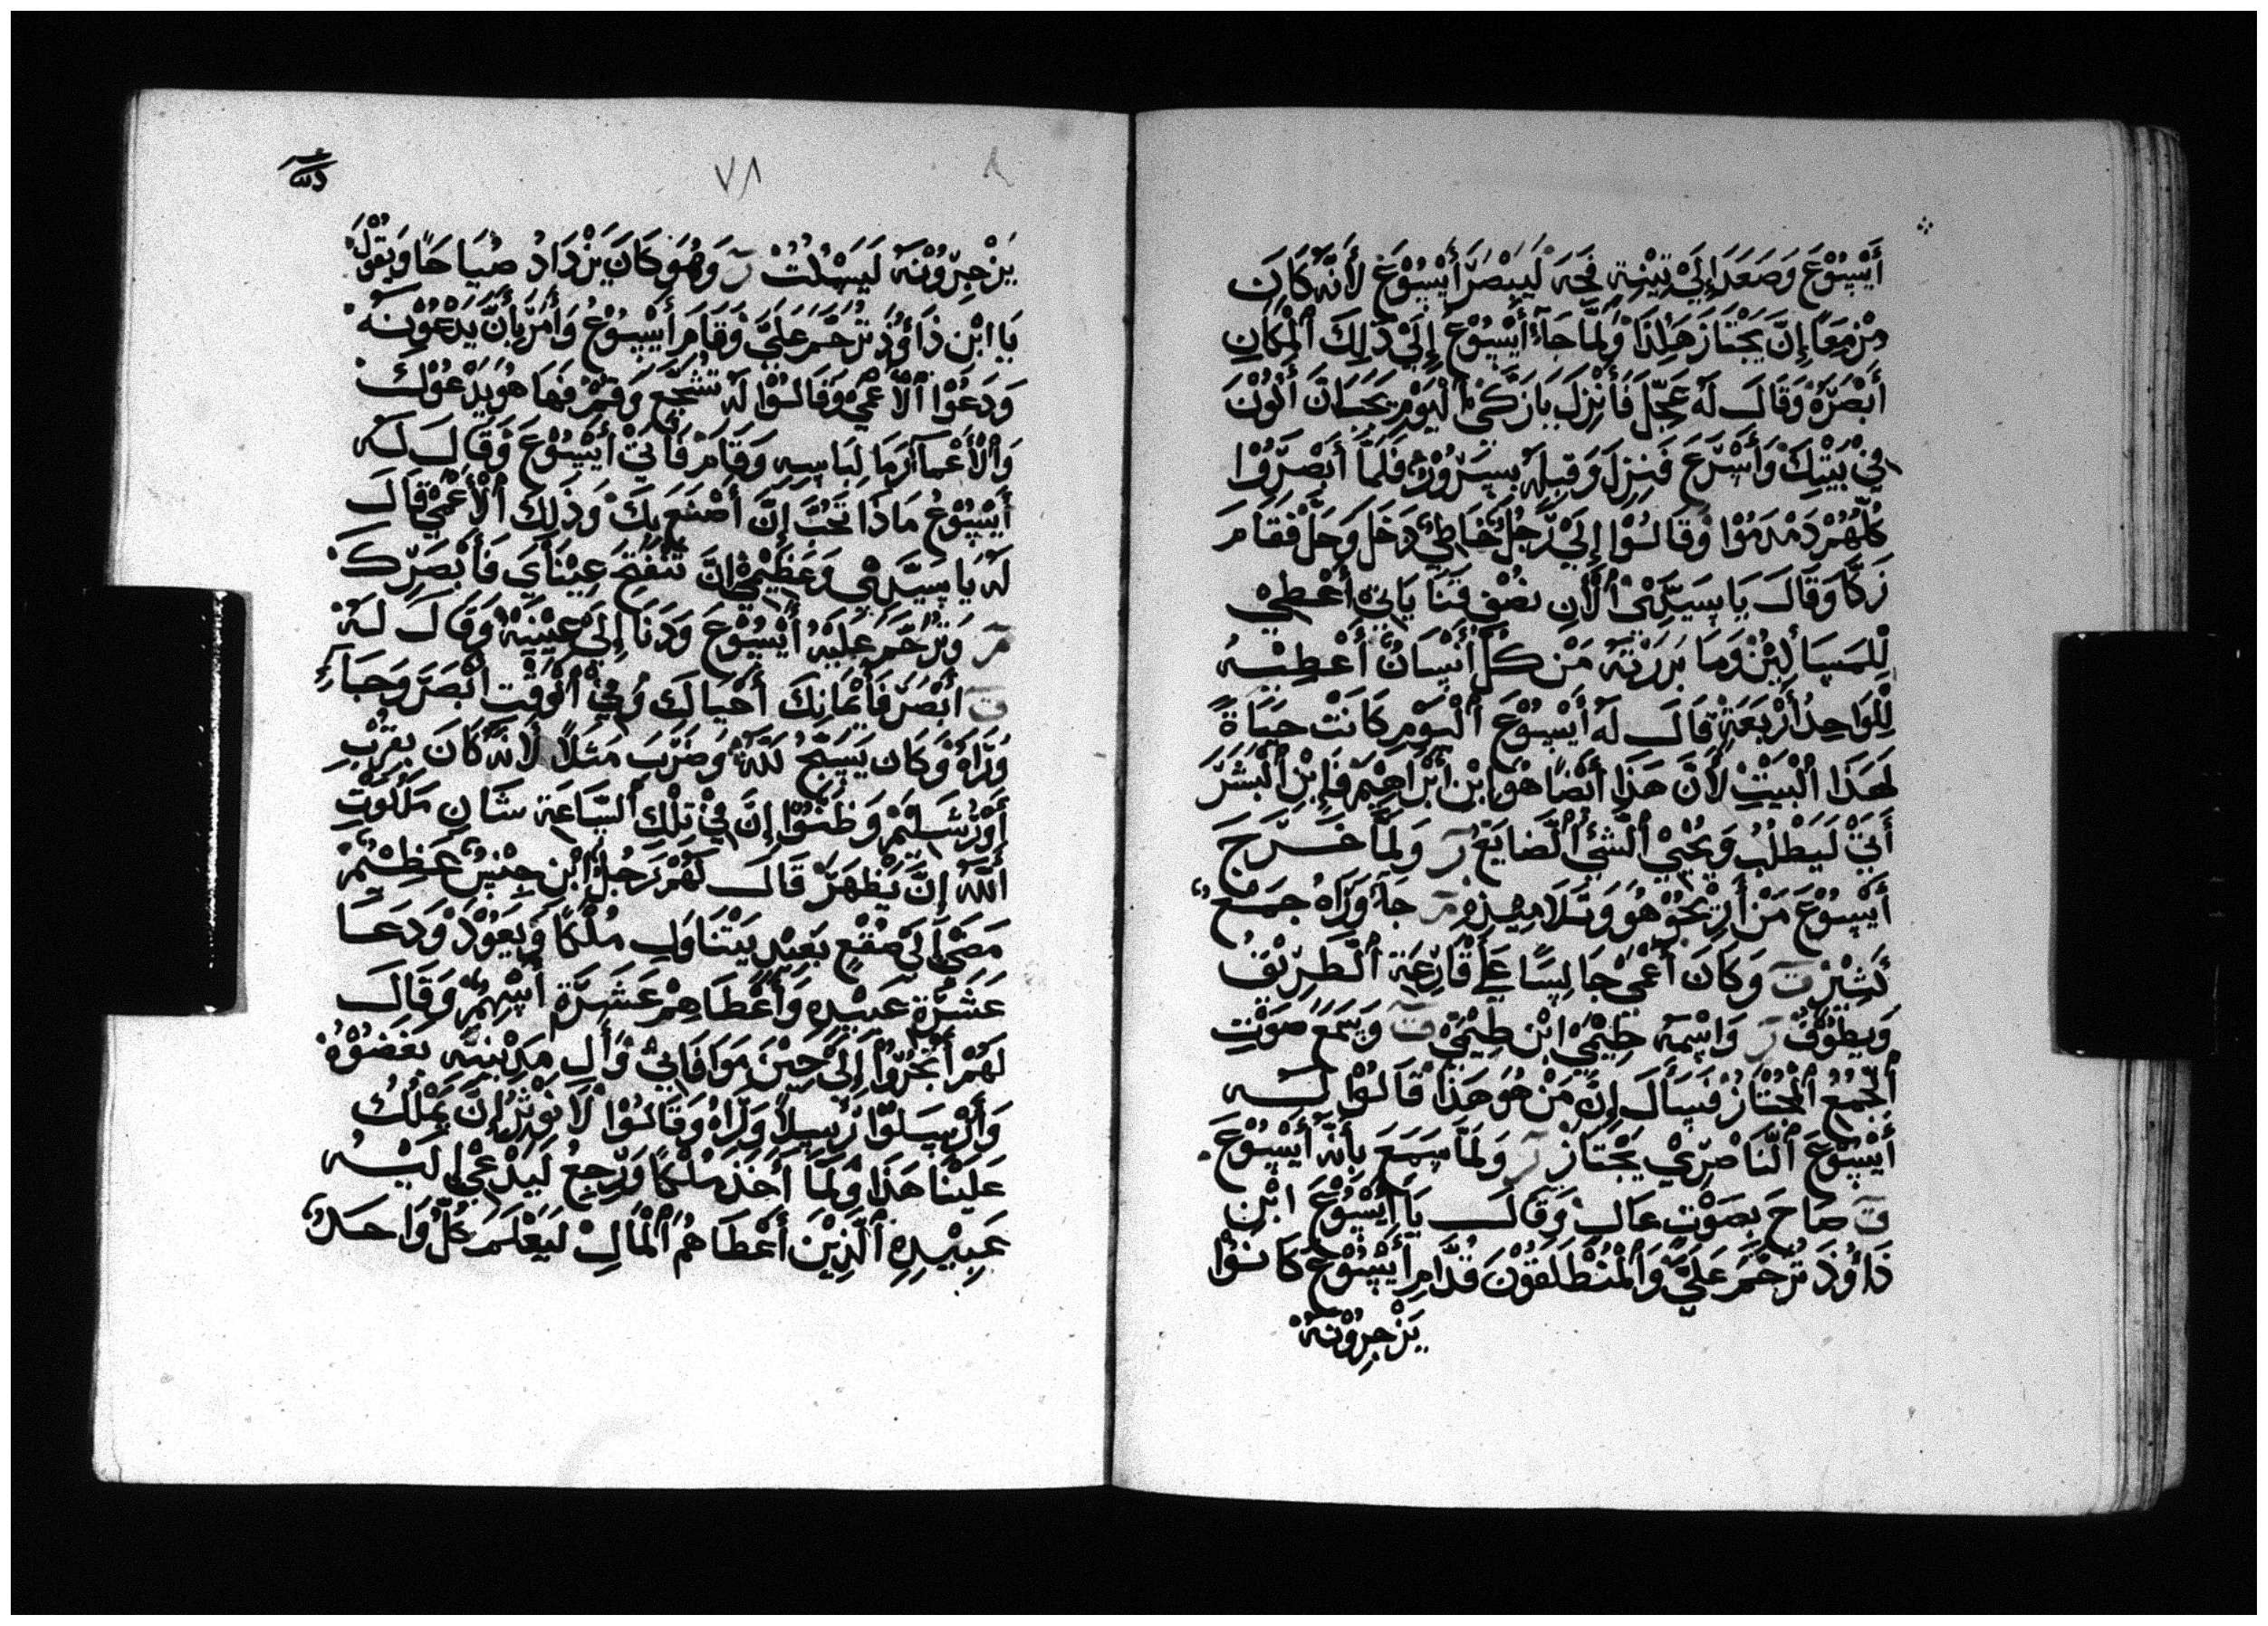 أَيْسُوْعَ وَصَعَدَ إِلَيْ تِيْنِةٍ فَجَّهَ لَيَبْصَرَ أَيْسُوْعَ لأَنَّهُ كَانَ
مزمَعًا إِنَّ يَجْتَازَ هَكَذَا وَلَمَّا جَاءَ أَيْسُوْعَ إِلَيْ ذَلِكَ ٱلْمكَانِ
أَبْصَرَهُ وَقَالَ لَهُ عَجِّلْ فَأَنْزِلْ يَا زَكَّىْ ٱلْيَوْمِ يَجُبَ انَّ أَكُوْنَ
فِيْ بَيْتِكْ وَأَسْرَعَ فَنِزِلَ وَقَبِلَهُ بِسِرُوْرٍ فَلَمَّا أَبْصَرُوْا
كُلّهُمْ دَمْدَمُوْا وَقَالُوْا إِلَيْ رَجُلٍ خَاطِيْ دَخَلَ وَحَلَّ فَقَامَ
زَكَّا وَقَالَ يَا سَيِّدِيْ ٱلْأَنِ نصْف قَنَايَايَ أُعْطِيْ
لِلْمسَاكِيْن وَمَا بَزَزْتهُ مَنْ كُلِّ أَنْسَانٍ أُعْطِيْهُ
لْلوَاحِدُ أَرْبَعَةْ قَالَ لَهُ أَيْسُوْعَ ٱلْيَوْمِ كَانَتْ حَيَاةً
لَهَذَا ٱلْبَيْتِ لأَنَّ هَذَا أَيْضًا هُوَ ابْن ابْرَاهِيْمْ فَإِبْن ٱلْبَشَرَ
أَتَىْ لَيَطْلُبُ وَيَحْيِيْ ٱلْشَئْ ٱلْضَايَعْ ر وَلَمَّا خَرَجَ
أَيْسُوْعَ مَنْ أَرِيْحُوْ هُوَ وَتَلَامِيْذِهِ مر جَاءَ وَرَاهُ جَمَعٌ
كَثِيْرٌ ت وَكَانَ أَعْمَىْ جَالِسًا عَلَيْ قَارِعَةِ ٱلْطَرِيْقْ
وَيَطُوْفُ ر وَاسْمهُ طِيْمَىْ ابْن طِيْمَىْ ت وَسَمَعَ صَوْتِ
ٱلْجَمَعُ ٱلْمُجْتَازْ فَسَأَلَ إِنَّ مَنْ هُوَ هَذَا قَالُوْا لَهُ
أَيْسُوْعَ ٱلْنَّاصِرِيْ يَجْتَازْ ر وَلَمَّا سَمَعَ بِأَنَّهُ أَيْسُوْعَ
ت صَاحَ بِصَوْتٍ عَالٍ وَقَالَ يَا أَيْسُوْعَ ابْن
دَاوُدَ تَرَحَّمَ عَلَيَّ وَٱلْمُنْطَلَقُوْنَ قُدَّامِ أَيْسُوْعَ كَانُوْا
يَزْجِرُوْنَهُ
٧٨
يَزْجِرُوْنَهُ لَيَسْكُتْ ر وَهُوَ كَانَ يَزْدَادُ صَيَاحًا وَيَقُوْلُ
يَا ابْن دَاوُدَ تَرَحَّمَ عَلَيَّ وَقَامَ أَيْسُوْعُ وَأَمَرَ بِأَنَّ يَدْعُوْنهُ
وَدَعُوْا ٱلْأَعْمَىْ وَقَالُوْا لَهُ تَشَجَّعْ وَقمْ فَهَا هُوَ يَدْعُوْكَ
وَٱلْأَعْمَا رَمَا لِبَاسِهِ وَقَامَ فَأَتَىْ أَيْسُوْعَ وَقَالَ لَهُ
أَيْسُوْعُ مَاذَا تَحُبَّ إِنَّ أَصْنَعَ بِكَ وَذَلِكَ ٱلْأَعْمَىْ قَالَ
لَهُ يَا سَيِّدِيْ وَعَظِيْمِيْ انَّ تَنْفَتِحَ عِيْنَأَيَ فَأَبْصَرَكَ
مر وَتَرَحَّمَ عَلَيْهُ أَيْسُوْعَ وَدَنَا إِلَيْ عَيْنَيْهُ وَقَالَ لَهُ
ت ابْصُرْ فَأَيْمَانِكَ أَحْيَاكَ وَفِيْ ٱلْوَقْت ابْصَرَ وَجَاءَ
وَرَاهُ وَكَان يَسَبِّحُ لَلَّهْ وَضَرَبَ مَثَلًا لأَنَّهُ كَانَ بِقُرْبِ
أَوْرْشَلِيْمْ وَظَنُّوْا إِنَّ فِيْ تِلْكَ ٱلْسَّاعَةِ شَانِ مَلَكُوْتِ
ٱللَّهُ إِنَّ يَظْهَرْ قَالَ لَهُمْ رَجُلٌ ابْن جِنْسٍ عَظِيْمٌ
مَضَىْ إِلَيْ صُقْعٍ بَعَيْدٍ يَتْنَاوَلِ مُلْكًا وَيَعُوْدْ وَدَعَا
عَشَرَةِ عَبِيْدِهِ وَأَعْطَاهِمْ عَشَرَةِ أَسْهُمٌ وَقَالَ
لَهُمْ أَتْجُرُوْا إِلَيْ حِيْن مَوَافَاتِيْ وَأَل مَدِيْنِتِه بَغَضُوْهُ
وَأَرْسَلُوْا رَسِلًا وَرَاهُ وَقَالُوْا لَا نُوْثِرُ إِنَّ يَمْلُكُ
عَلَيْنَا هَذَا وَلَمَّا أَخَذَ مُلْكًا وَرَجِعْ لَيَدْعَىْ لَيْهُ
عَبِيْدِهِ ٱلَّذِيْن أَعْطَاهُم ٱلْمَالِ لَيَعْلَمَ كُلِّ وَاحَدٌ